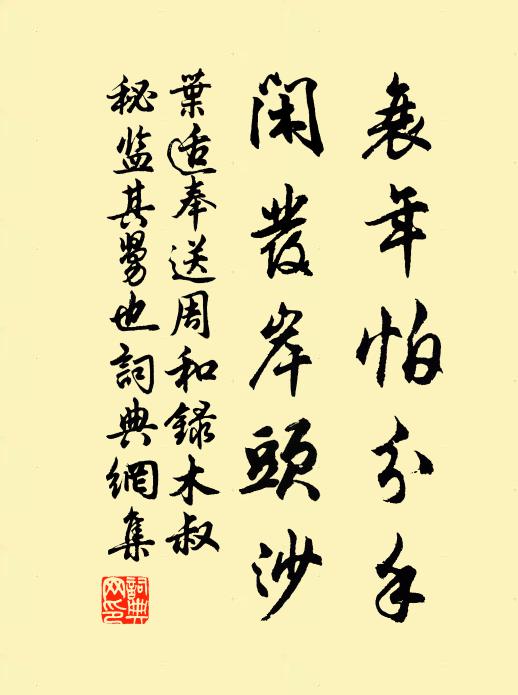 衰年怕分手
閑發岸頭沙
葉適奉送周和錄木叔
秘监其舅也詞典網集
詞典網印